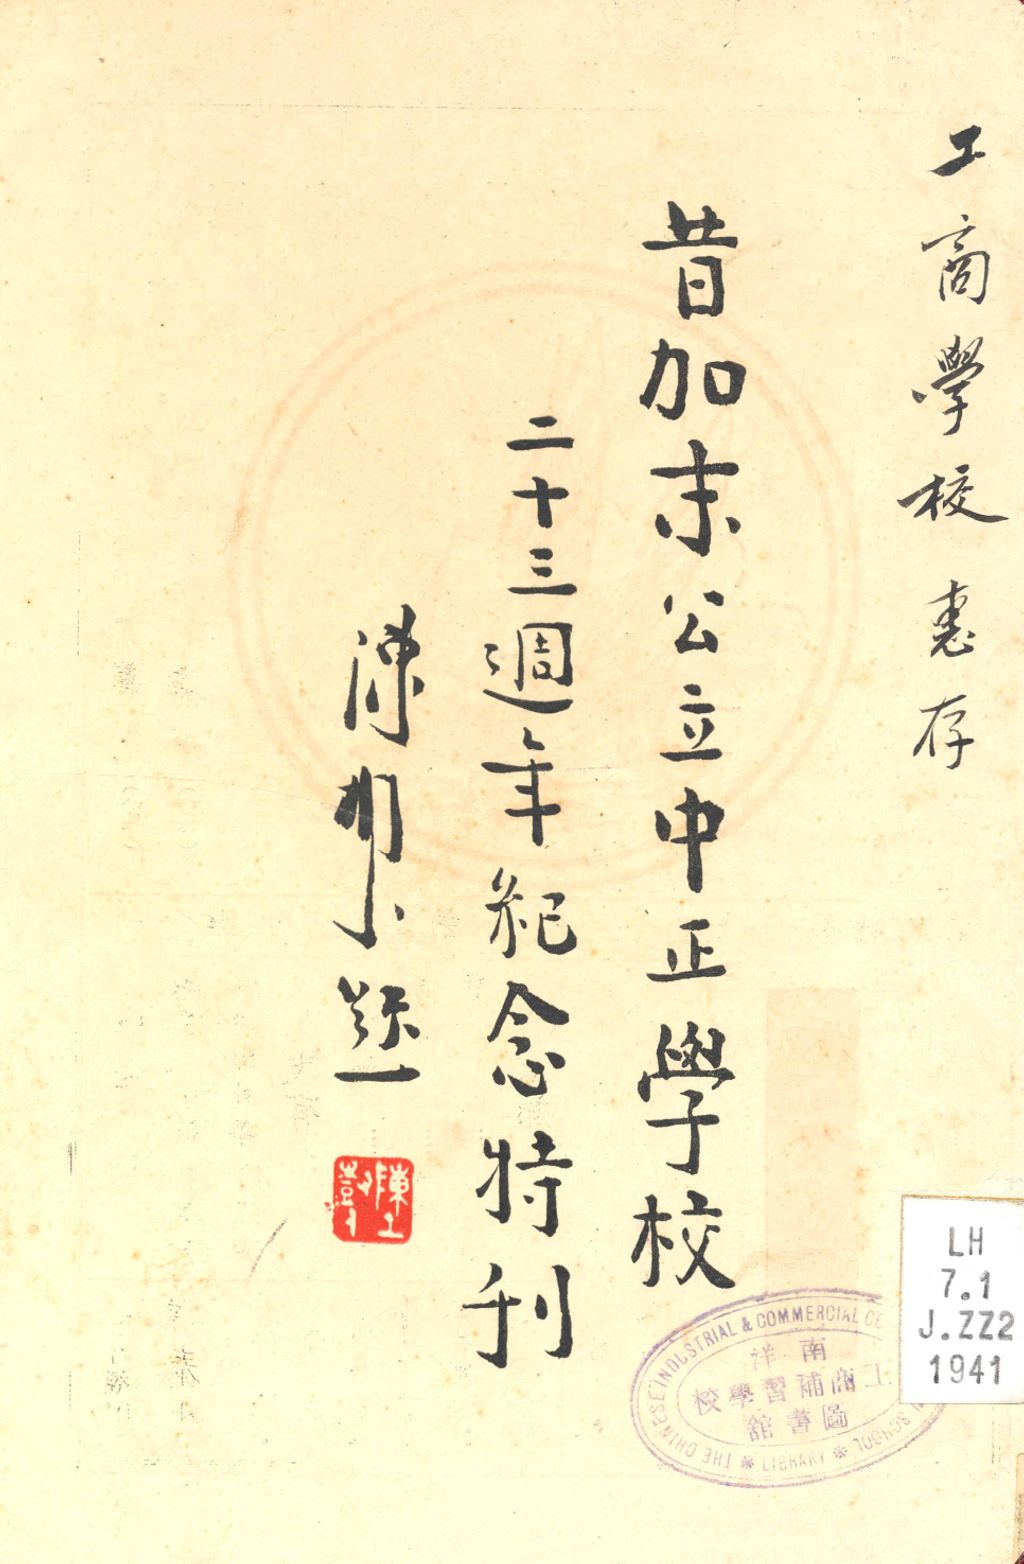 工商學校 惠存
昔加末公立中正學校
二十三週年紀念特刊
陳
題
THE CHINESE INDUSTRIAL & COMMERCIAL
SCHOOL
LIBRARY
南洋
工商補習學校
圖書舘
LH
7.1
J.ZZ2
1941